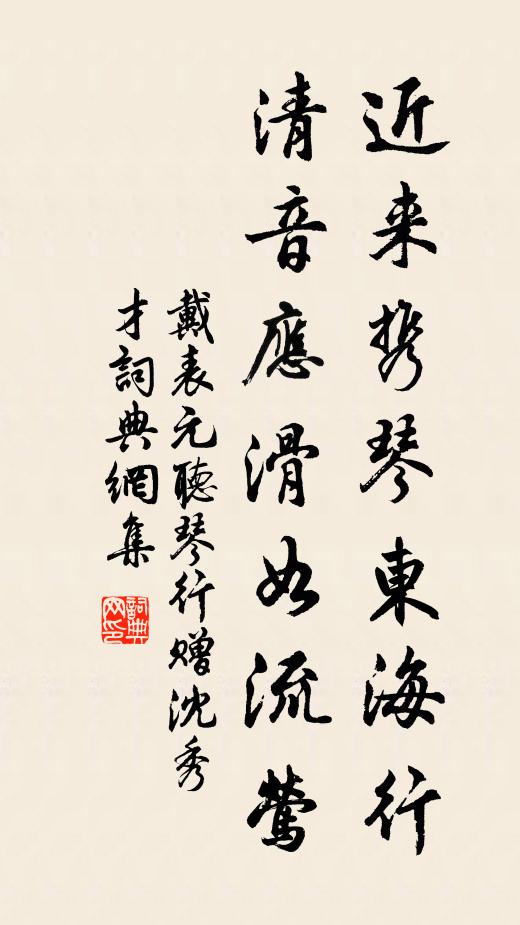 近来携琴東海行
清音應滑如流莺
戴表元聽琴行赠沈秀
才詞典網集
詞典網印